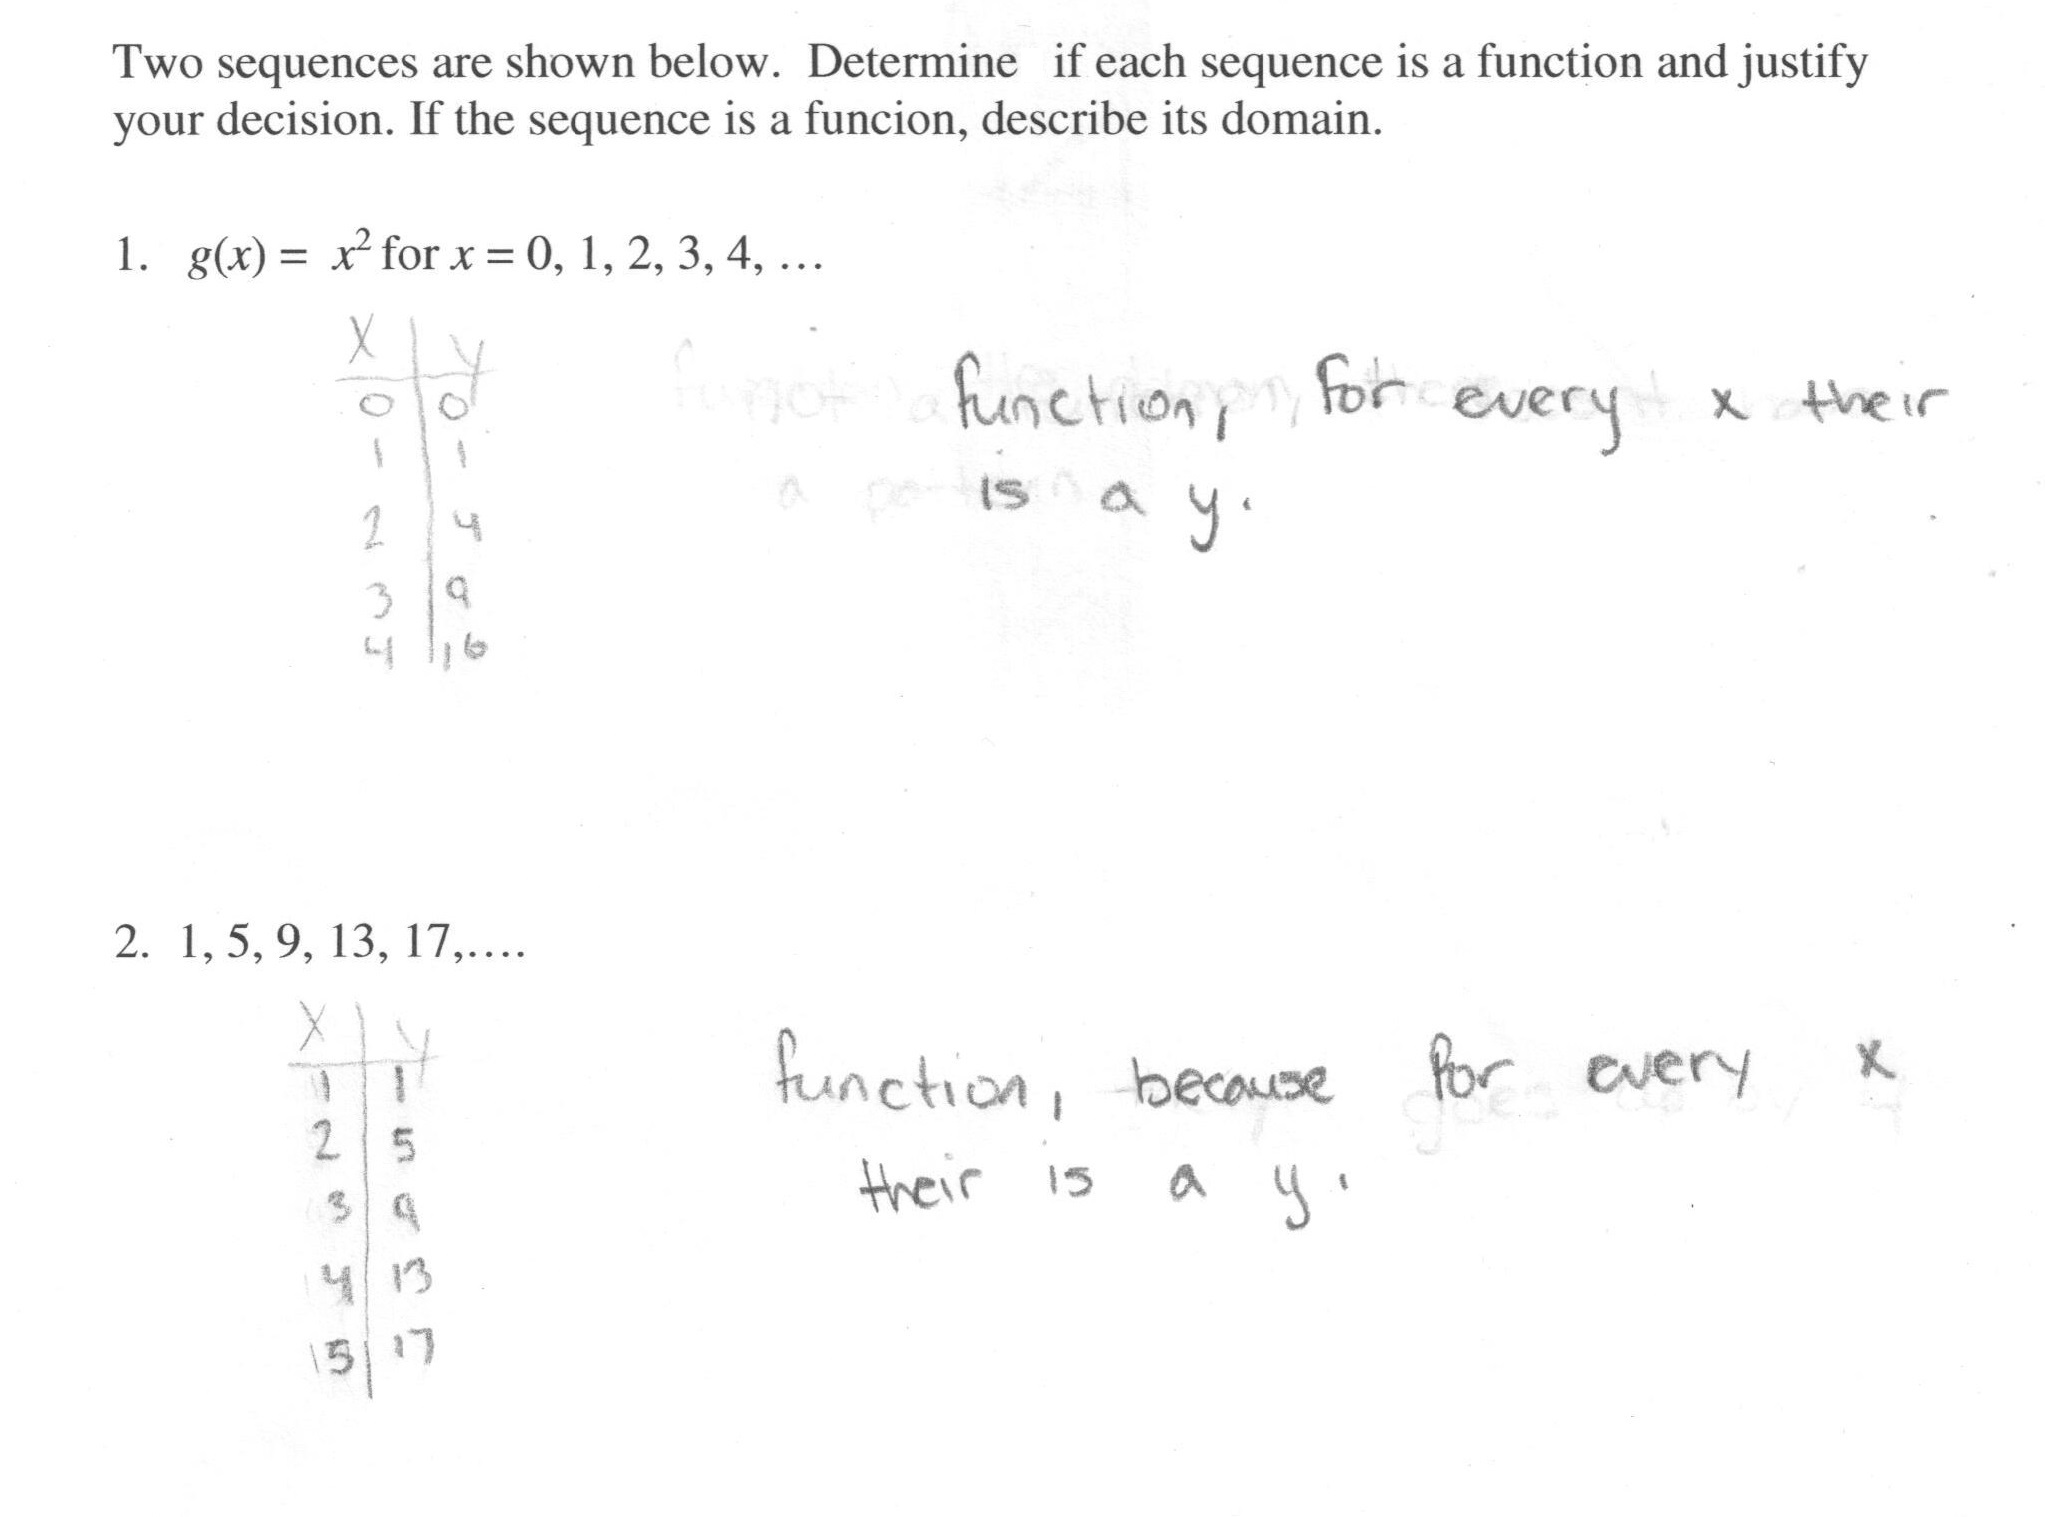 Two sequences are shown below. Determine if each sequence is a function and justify
your decision. If the sequence is a funcion, describe its domain.
1. g(x) = x² for x = 0, 1, 2, 3, 4, …
X y
0 0
1 1
2 4
3 9
4 16
function, for every x their
is a y.
2. 1, 5, 9, 13, 17,....
X y
1 1
2 5
3 9
4 13
5 17
function, because for every x
their is a y.